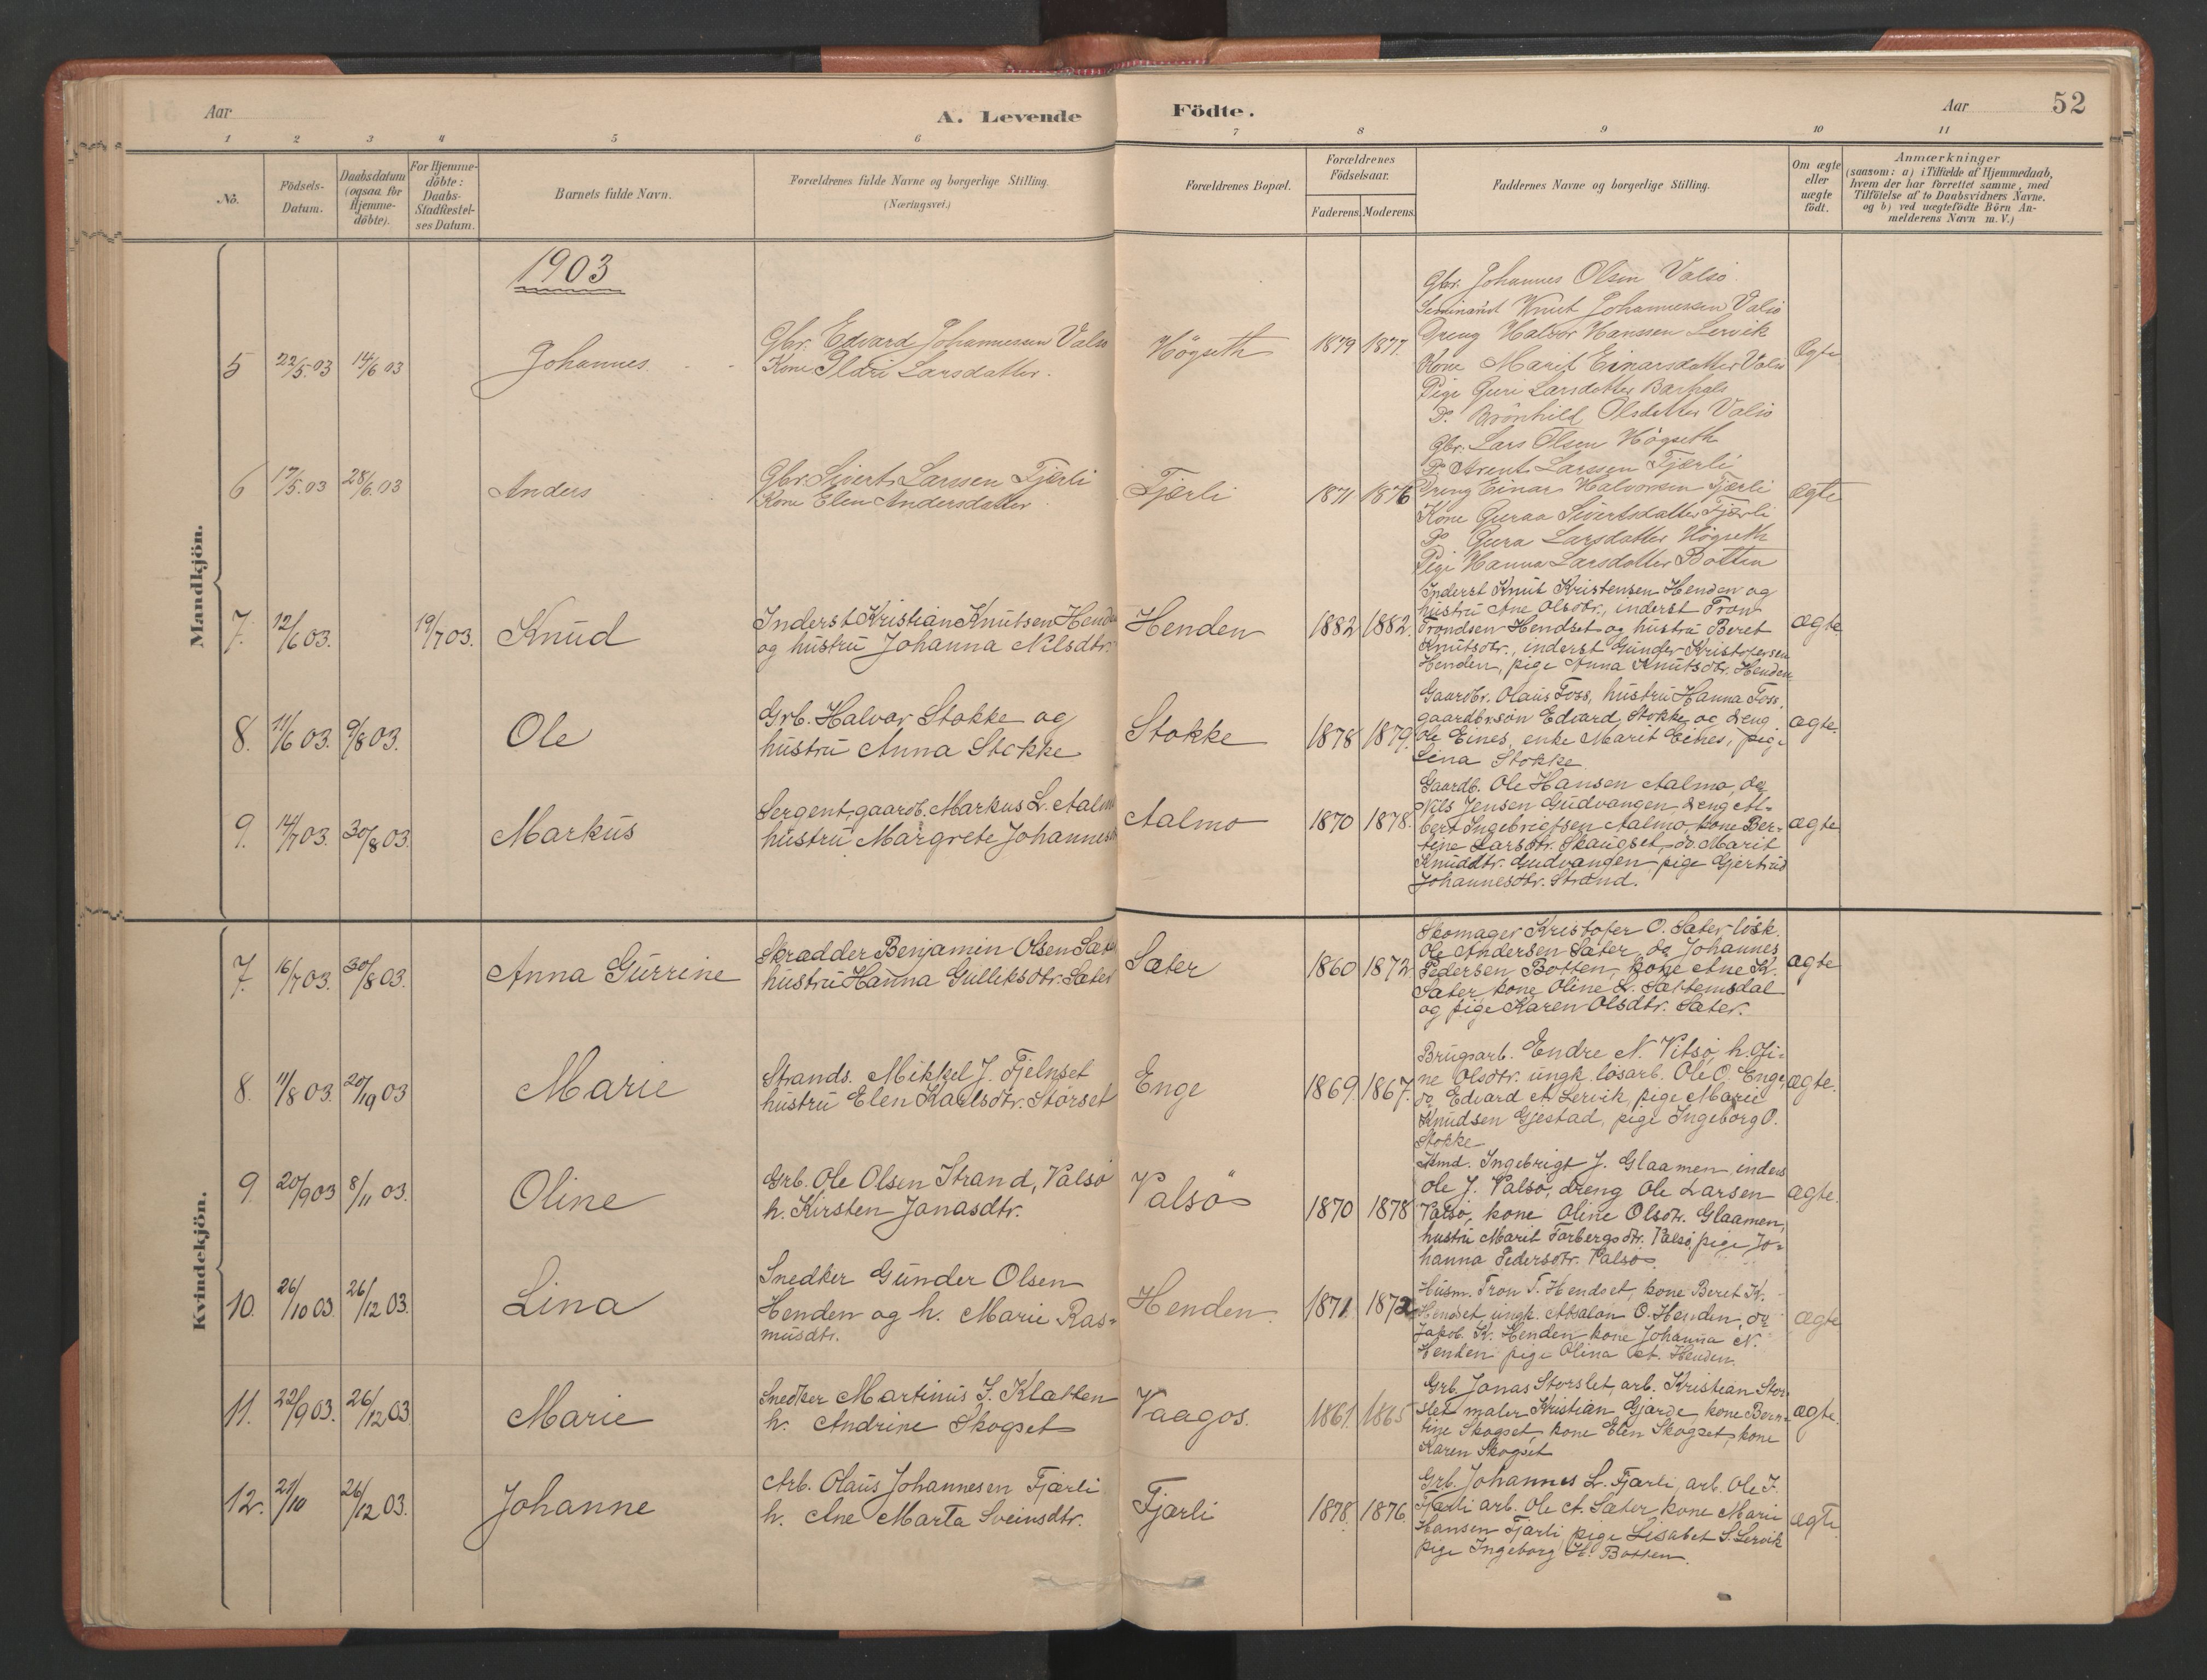 Aar
A. Levende
Födte.
Aar
52
1
2
3
4
5
6
7
8
9
10
11
No.
Födsels-
Datum.
Daabsdatum
(ogsaa for
Hjemme-
döbte).
For Hjemme-
döbte:
Daabs-
Stadfæstel-
ses Datum.
Barnets fulde Navn.
Forældrenes fulde Navne og borgerlige Stilling.
(Næringsvei.)
Forældrenes Bopæl.
Forældrenes
Födselsaar.
Faderens. Moderens.
Faddernes Navne og borgerlige Stilling.
Om ægte
eller
uægte
födt.
Anmærkninger
(saasom: a) i Tilfælde af Hjemmedaab,
hvem der har forrettet samme, med
Tilföielse af to Daabsvidners Navne.
og b) ved uægtefödte Börn An-
melderens Navn m. V.)
Mandkjön.
1903
5
22/5.03
14/6 03
Johannes
Gbr. Edvard Johannessen Valsö
Kone Ildri Larsdatter.
Högseth
1879
1877
Gbr. Johannes Olsen Valsö
Seminarist Knut Johannessen Valsö
Dreng Halvor Hanssen Lervik
Kone Marit Einarsdatter Valsö
Pige Guri Larsdatter
Do Brönhild Olsdatter Valsö
Ægte
6
17/5.03
28/6.03
Anders
Gbr. Sivert Larssen Fjærli
Kone Elen Andersdatter
Fjærli
1871
1876
Gbr. Lars Olsen Högseth
Do Arent Larssen Fjærli
Dreng Einar Halvorsen Fjærli
Kone Guraa Sivertsdatter Fjærli
Do Gura Larsdatter Högseth
Pige Hanna Larsdatter Botten
Ægte
7.
12/6 03.
19/7 03.
Knud
Inderst Kristian Knutsen Henden
og hustru Johanna Nilsdtr.
Henden
1882
1882.
Inderst Knut Kristensen Henden og
hustru Ane Olsdtr., inderst Tron
Trondsen Hendset og hustru Beret
Knutsdtr., inderst Gunder Kristofersen
Henden, pige Anna Knutsdtr. Henden
Ægte
8.
11/6 03.
9/8 03.
Ole
Grb. Halvor Stokke og
hustru Anna Stokke
Stokke
1878
1879.
Gaardbr. Olaus Foss, hustru Hanna Foss,
gaardbrsøn Edvard Stokke og dreng
Ole Eines, enke Marit Eines, pige
Lina Stokke
Ægte.
9.
14/7 03.
30/8 03.
Markus
Sergent, gaardb. Markus L. Aalmo
hustru Margrete Johannesdtr
Aalmo
1870
1878.
Gaardb. Ole Hansen Aalmo, do
Nils Jensen Gudvangen, dreng Al-
bert Ingebrigtsen Aalmo, kone Ber-
tine Larsdtr. Skaugset, do. Marit
Knuddtr. Gudvangen pige Gjertrud
Johannesdtr. Strand.
Ægte
Kvindekjön.
7.
16/7 03.
30/8 03.
Anna Gurine
Skrædder Benjamin Olsen Sæter
hustru Hanna Gulleksdtr. Sæter
Sæter
1860
1872
Skomager Kristofer O. Sæter, løsk.
Ole Andersen Sæter, do Johannes
Pedersen Botten, kone Ane K.
Sæter, kone Oline L. Sættemsdal
og pige Karen Olsdtr. Sæter.
Ægte
8.
11/8 03.
20/19 03
Marie
Strands. Mikkel J. Fjelnset
hustru Elen Karlsdtr. Störset
Enge
1869.
1867.
Brugsarb. Endre N. Vitsø, h. Gi-
ne Olsdtr. ungk. løsarb. Ole O. Enge
do Edvard A. Lervik, pige Marie
Knudsen Gjestad, pige Ingeborg O.
Stokke
Ægte.
9.
20/9 03
8/11 03.
Oline
Grb. Ole Olsen Strand, Valsø
h. Kirsten Jonasdtr.
Valsø
1870
1878
Kmd. Ingebrigt J. Glaamen, inders
Ole J. Valsø, dreng Ole Larsen
Valsø, kone Oline Olsdtr. Glaamen,
hustru Marit Torbergsdtr. Valsø, pige Jo-
hanna Pedersdtr. Valsø.
Ægte.
10.
26/10 03.
26/12 03.
Lina
Snedker Gunder Olsen
Henden og h. Marie Ras-
musdtr.
Henden.
1871
1872
Husm. Tron T. Hendset, kone Beret K.
Hendset, ungk. Absalon O. Henden, do
Jakob K. Henden, kone Johanna N.
Henden pige Olina A. Henden.
Ægte
11.
22/9 03.
26/12 03
Marie
Snedker Martinus J. Klatten
h. Andrine Skogset
Vaagos.
1861.
1865
Grb. Jonas Storslet, arb. Kristian Stor-
slet maler Kristian Gjærde, kone Bern-
tine Skogset, kone Elen Skogset, kone
Karen Skogset
Ægte.
12.
21/10
26/12 03.
Johanne
Arb. Olaus Johannesen Fjærli
h. Ane Marta Sveinsdtr.
Fjærli
1878.
1876.
Grb. Johannes L. Fjærli, arb. Ole J.
Fjærli arb. Ole A. Sæter, kone Marie
Hansen Fjærli pige Lisabet S. Lervik
pige Ingeborg H. Botten.
Ægte.